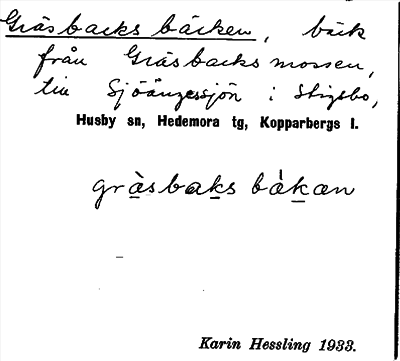 Gräsbacks bäcken, bäck
från Gräsbacksmossen,
till Sjöängessjön i Stigsbo,
Husby sn, Hedemora tg, Kopparbergs l.
gràsbaks bàkan
Karin Hessling 1933.